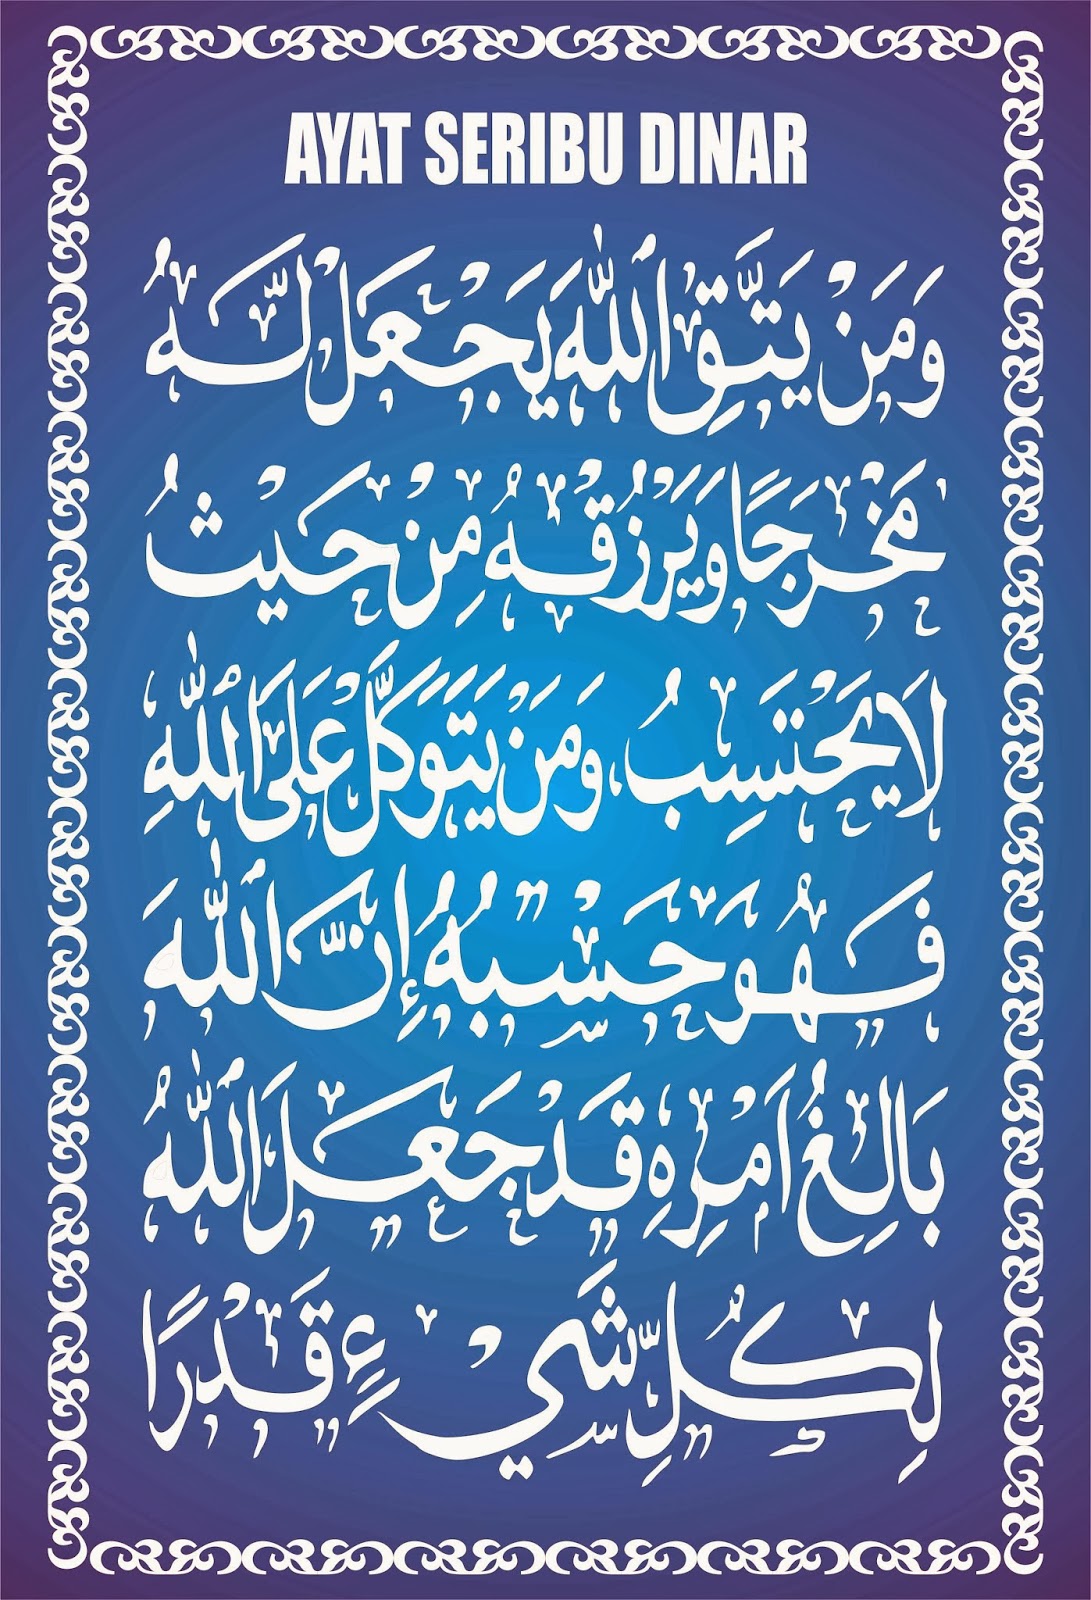 AYAT SERIBU DINAR
وَمَنْ يَتَّقِ ٱللّٰهَ يَجْعَلْ لَّهُ
مَخْرَجًا وَيَرْزُقْهُ مِنْ حَيْثُ
لَا يَحْتَسِبُ، وَمَنْ يَتَوَكَّلْ عَلَى ٱللّٰهِ
فَهُوَ حَسْبُهُ إِنَّ ٱللّٰهَ
بَالِغُ اَمْرِهِ قَدْ جَعَلَ ٱللّٰهُ
لِكُلِّ شَيْءٍ قَدْرًا